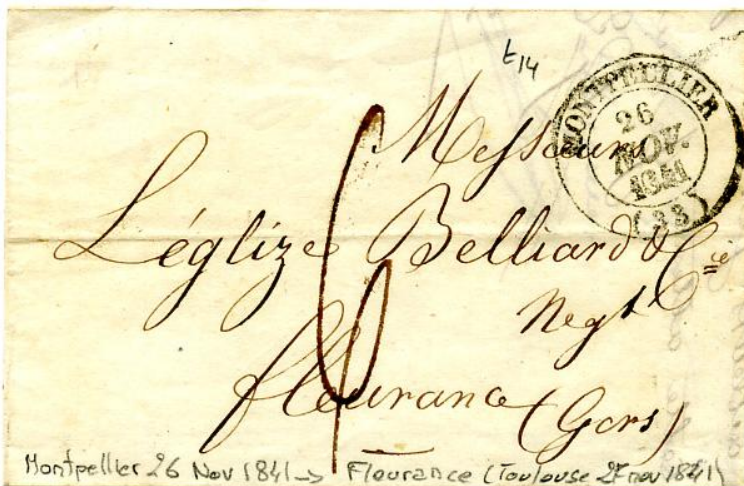 t14
MONTPELLIER
26
NOV.
1841
(33)
Messieurs
Léglize Belliard & Cie
Negts
6
fleurance (Gers)
Montpellier 26 Nov 1841 -> Fleurance (Toulouse 27 nov 1841)